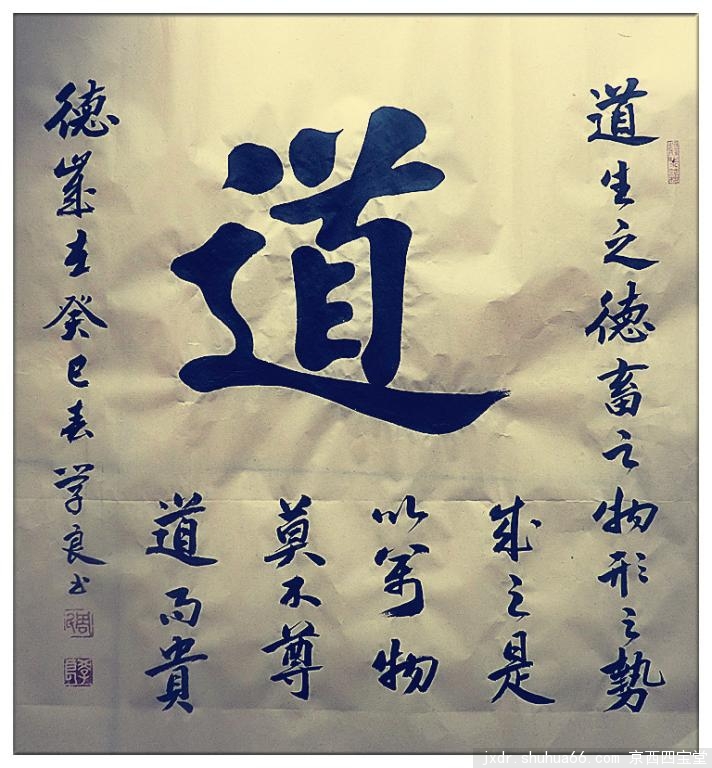 道
道生之德畜之物形之勢
成之是
以萬物
莫不尊
道而貴
德歲在癸巳春学良书
jxdr.shuhua66.com 京西四宝堂